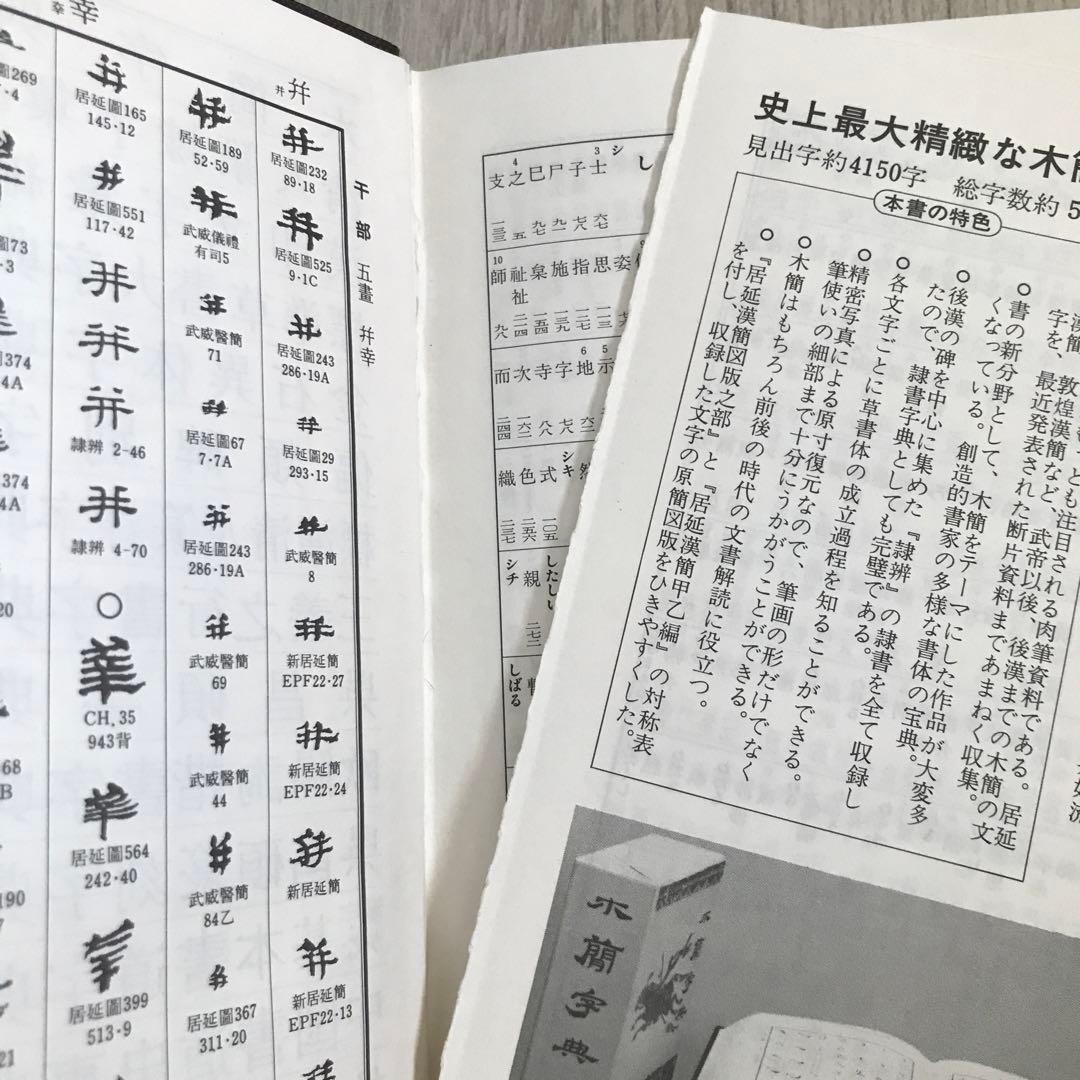 幸
幸
井
幷
干部 五畫 幷幸
居延圖232
89·18
居延圖525
9·1C
居延圖243
286·19A
居延圖29
293·15
武威醫簡
8
新居延簡
EPF22·27
新居延簡
EPF22·24
新居延簡
新居延簡
EPF22·13
居延圖189
52·59
武威儀禮
有司5
武威醫簡
71
居延圖67
7·7A
居延圖243
286·19A
武威醫簡
69
武威醫簡
44
武威醫簡
84乙
居延圖367
311·20
居延圖165
145·12
居延圖551
117·42
隷辨 2-46
隷辨 4-70
○
CH, 35
943背
居延圖564
242·40
居延圖399
513·9
し
シ
3
士 六七
子 七六
尸 九一
巳 九七
4
之 五
支 一三三
姿
思 一一三
指 一二九
施 一三七
枲 一五四
祉 祉 二一四
10
師 九八
5
示
6
地
字 七六
寺 八八
次 一六二
而 二四四
シキ
式 一〇五
色 二五六
織 二三七
したしい
親 二七二
シチ
しばる
史上最大精緻な木簡
見出字約4150字 総字数約5
本書の特色
も注目される肉筆資料である。居延
漢簡、敦煌漢簡など、武帝以後、後漢までの木簡の文
字を、最近発表された断片資料まであまねく収集。
○書の新分野として、木簡をテーマにした作品が大変多
くなっている。創造的書家の多様な書体の宝典。
○後漢の碑を中心に集めた『隷辨』の隷書を全て収録し
たので、隷書字典としても完璧である。
○各文字ごとに草書体の成立過程を知ることができる。
○精密写真による原寸復元なので、筆画の形だけでなく
筆使いの細部まで十分にうかがうことができる。
○木簡はもちろん前後の時代の文書解読に役立つ。
○『居延漢簡図版之部』と『居延漢簡甲乙編』の対称表
を付し、収録した文字の原簡図版をひきやすくした。
木簡字典